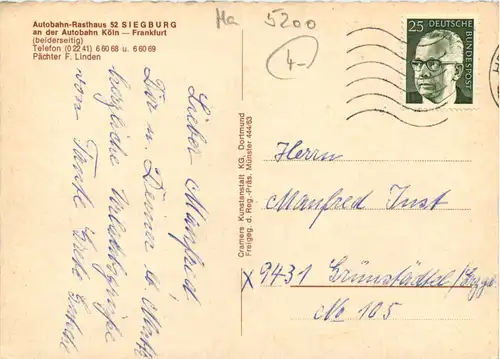 Autobahn-Rasthaus 52 SIEGBURG
an der Autobahn Köln — Frankfurt
(beiderseitig)
Telefon (0 22 41) 6 60 68 u. 6 60 69
Pächter F. Linden
Ma 5200
4.-
25 DEUTSCHE BUNDESPOST
Lieber Manfred
Dir u. Deiner lb
herzliche Urlaubsgrüße
von Tante Grete
Cramers Kunstanstalt KG, Dortmund
Freigeg. d. Reg.-Präs. Münster 444/63
Herrn
Manfred Just
x 9431 Grünstädtel/Erzgeb.
No 105